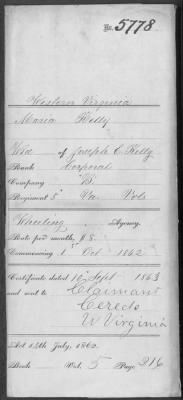 No. 5778
Western Virginia
Maria Kelly
Wid of Joseph C. Kelly
Rank Corporal
Company "B"
Regiment 5" Va Vols
Wheeling Agency.
Rate per month, $8.
Commencing 1 Oct 1862
Certificate dated 10" Sept 1863
and sent to Claimant
Ceredo
W Virginia
Act 14th July, 1862.
Book Vol. 5 Page 216